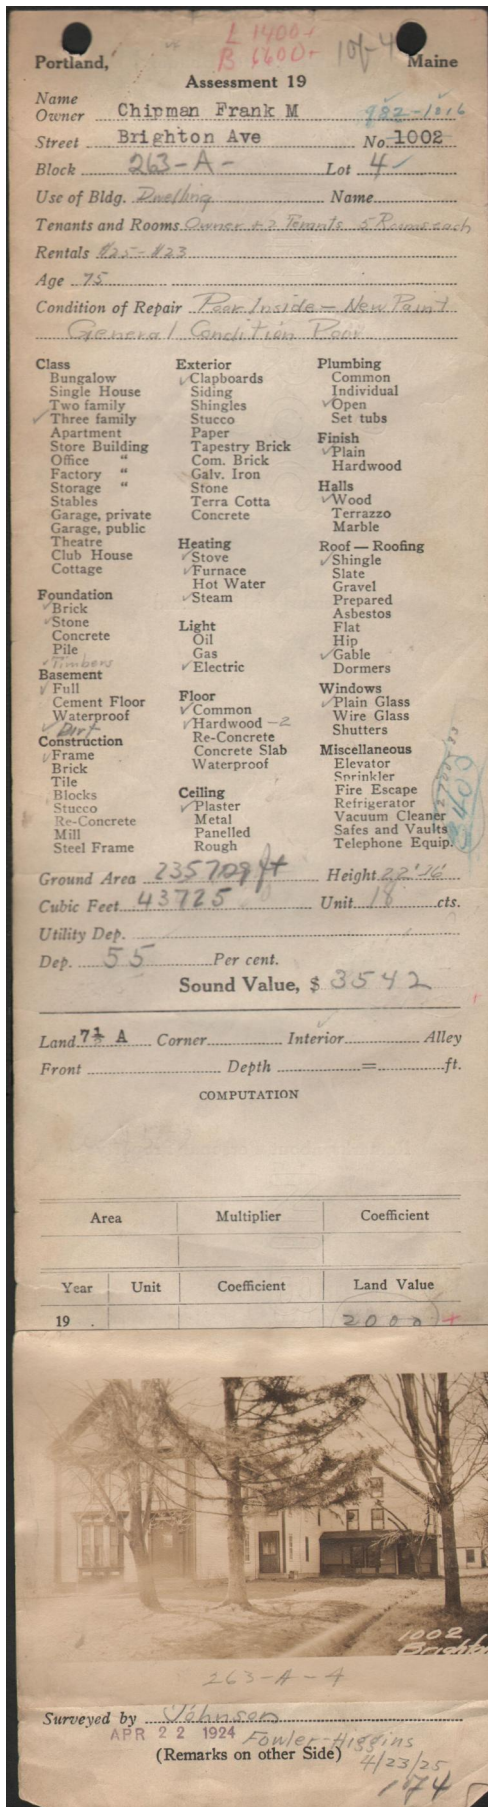 L 1400+
B 6600+
1 of 4
Portland, Maine
Assessment 19
Name
Owner Chipman Frank M 982-1016
Street Brighton Ave No. 1002
Block 263-A- Lot 4
Use of Bldg. Dwelling Name
Tenants and Rooms Owner + 2 Tenants 5 Rooms each
Rentals $25-$23
Age 75
Condition of Repair Poor Inside - New Paint
General Condition Poor
Class
Bungalow
Single House
Two family
✓Three family
Apartment
Store Building
Office "
Factory "
Storage "
Stables
Garage, private
Garage, public
Theatre
Club House
Cottage
Foundation
✓Brick
✓Stone
Concrete
Pile
✓Timbers
Basement
✓Full
Cement Floor
Waterproof
✓Dirt
Construction
✓Frame
Brick
Tile
Blocks
Stucco
Re-Concrete
Mill
Steel Frame
Exterior
✓Clapboards
Siding
Shingles
Stucco
Paper
Tapestry Brick
Com. Brick
Galv. Iron
Stone
Terra Cotta
Concrete
Heating
✓Stove
✓Furnace
Hot Water
✓Steam
Light
Oil
Gas
✓Electric
Floor
✓Common
✓Hardwood -2
Re-Concrete
Concrete Slab
Waterproof
Ceiling
✓Plaster
Metal
Panelled
Rough
Plumbing
Common
Individual
✓Open
Set tubs
Finish
✓Plain
Hardwood
Halls
✓Wood
Terrazzo
Marble
Roof — Roofing
✓Shingle
Slate
Gravel
Prepared
Asbestos
Flat
Hip
✓Gable
Dormers
Windows
✓Plain Glass
Wire Glass
Shutters
Miscellaneous
Elevator
Sprinkler
Fire Escape
Refrigerator
Vacuum Cleaner
Safes and Vaults
Telephone Equip.
Ground Area ft Height 22' 16'
Cubic Feet 43725 Unit 18 cts.
Utility Dep.
Dep. 55 Per cent.
Sound Value, $ 3542
Land 7½ A Corner Interior Alley
Front Depth = ft.
COMPUTATION
Area Multiplier Coefficient
Year Unit Coefficient Land Value
19 2000 +
1002
Brighton
263-A-4
Surveyed by Johnson
APR 22 1924 Fowler-Higgins
(Remarks on other Side) 4/23/25
174